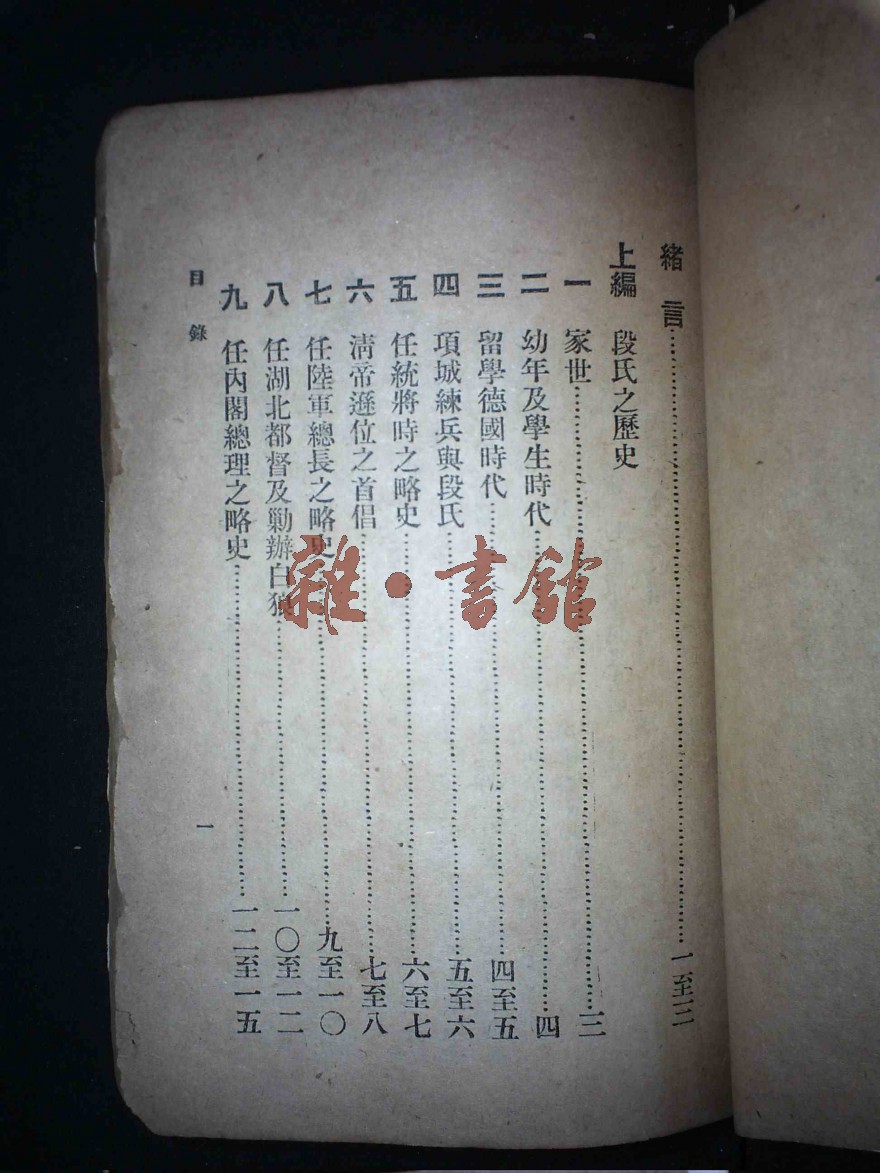 緒言⋯⋯一至三
上編　段氏之歷史
一　家世⋯⋯三
二　幼年及學生時代⋯⋯四
三　留學德國時代⋯⋯四至五
四　項城練兵與段氏⋯⋯五至六
五　任統將時之略史⋯⋯六至七
六　清帝遜位之首倡⋯⋯七至八
七　任陸軍總長之略史⋯⋯九至一〇
八　任湖北都督及剿辦白狼⋯⋯一〇至一二
九　任內閣總理之略史⋯⋯一二至一五
目錄
一
雜·書館